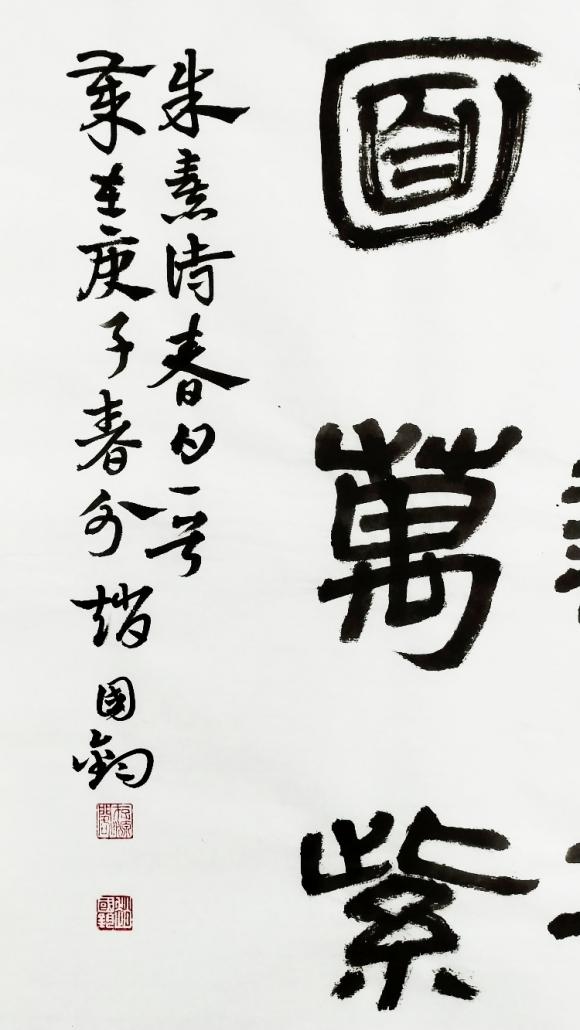 面萬紫
朱熹詩春日一首
歲在庚子春分趙國鈞